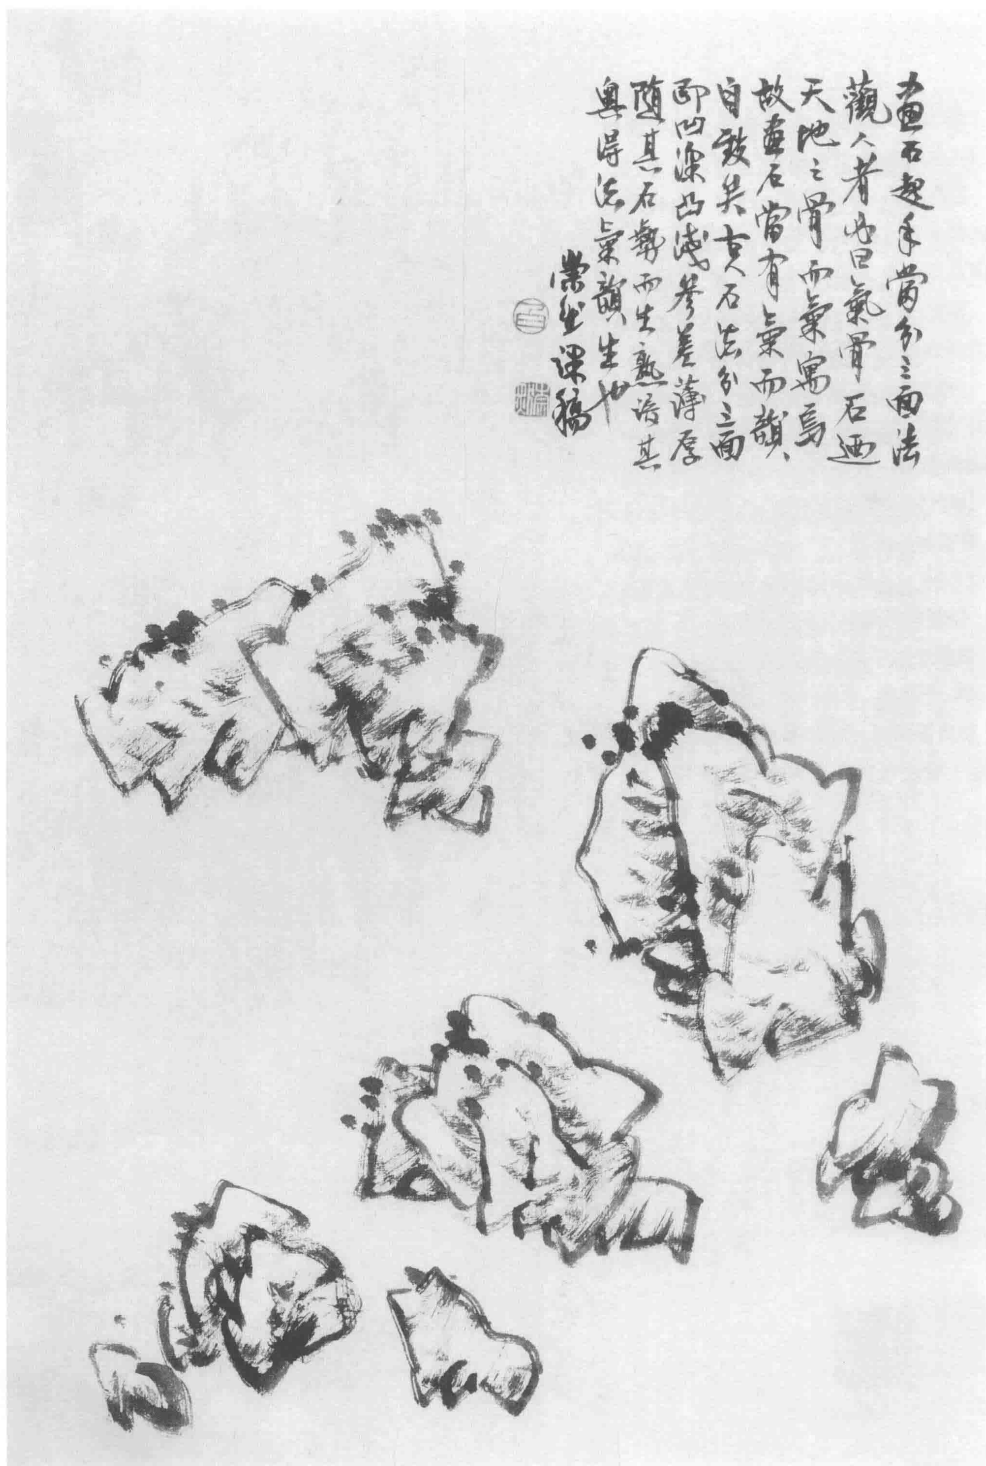 畫石起手當分三面法
觀人者必曰氣骨石迺
天地之骨而氣寓焉
故畫石當有氣而韻
自發矣古人石法分三面
即凹深凸淺參差薄厚
隨其石勢而生熟諳其
奧得法氣韻生也
榮生課稿